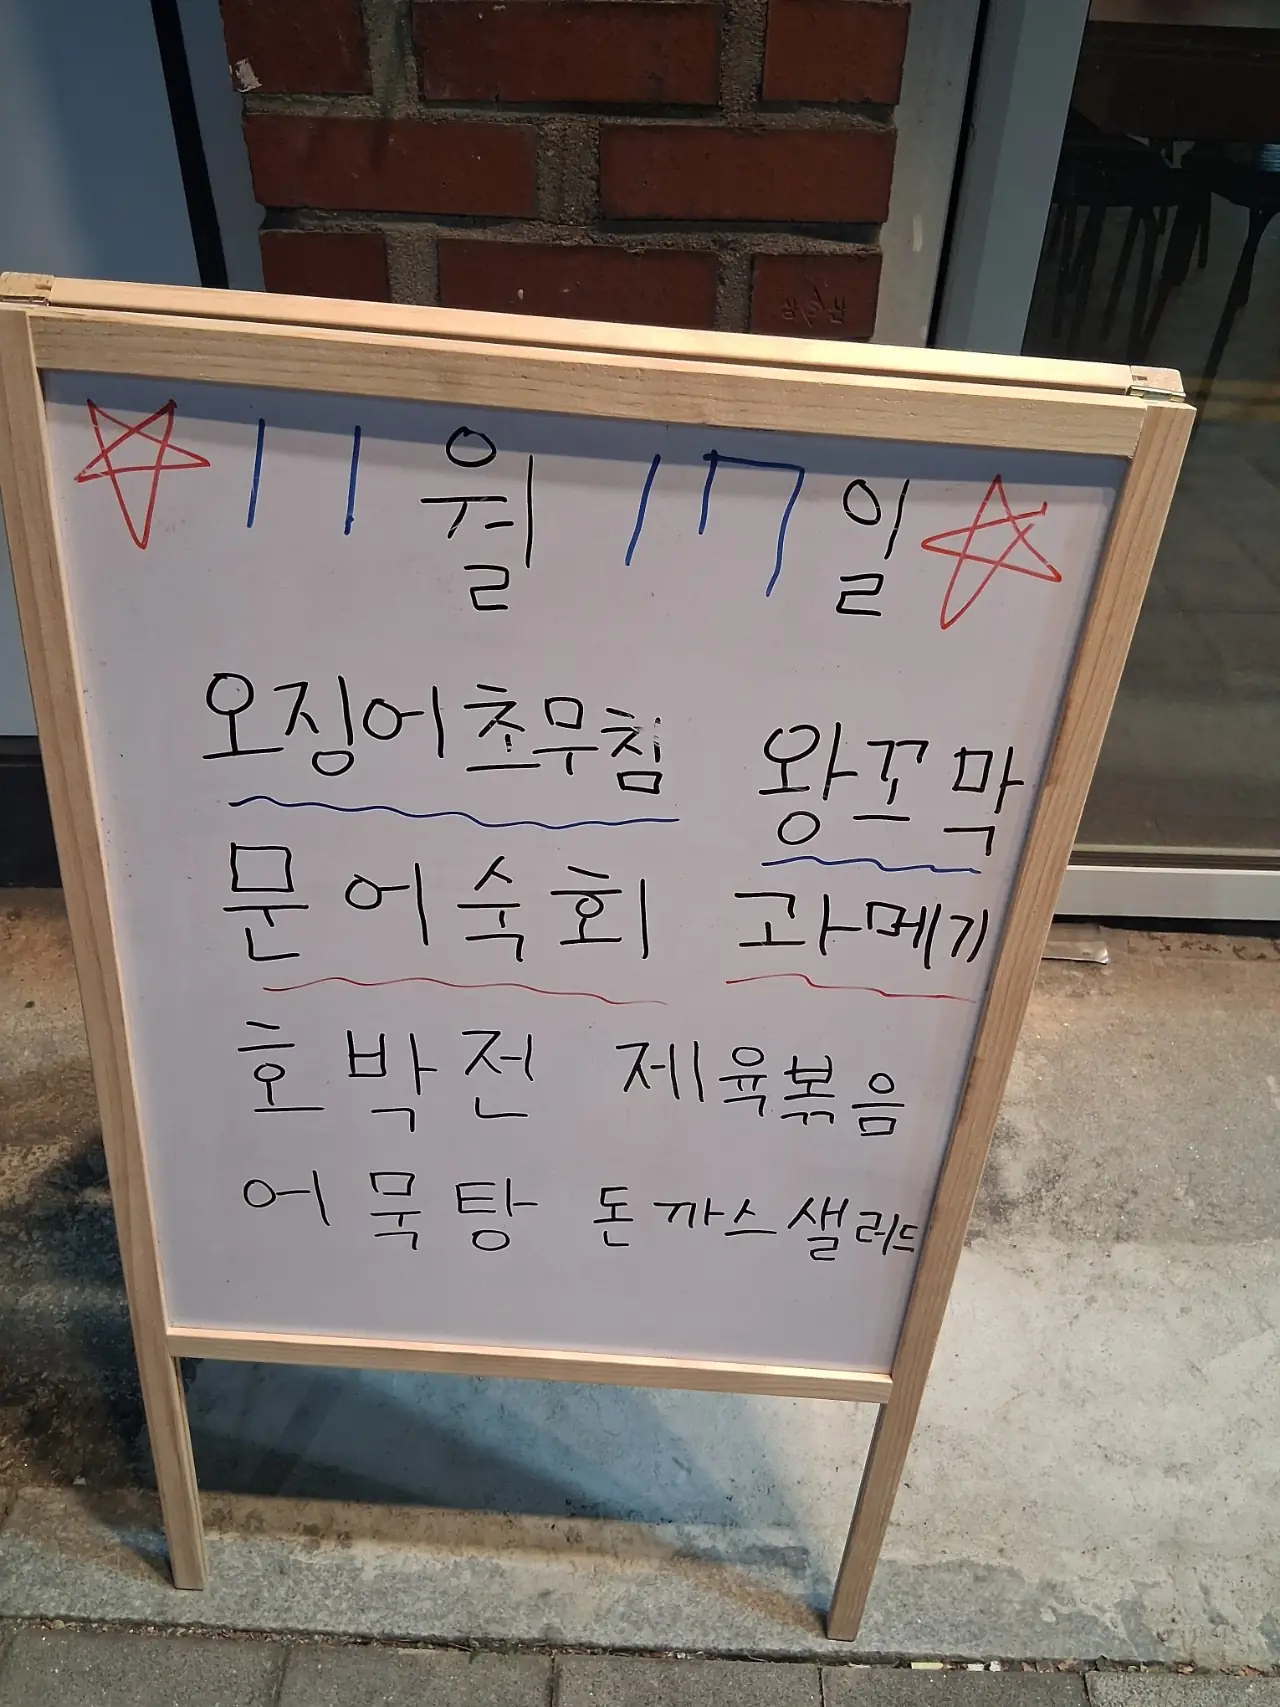 11월 17일
오징어초무침 왕꼬막
문어숙회 과메기
호박전 제육볶음
어묵탕 돈까스샐러드